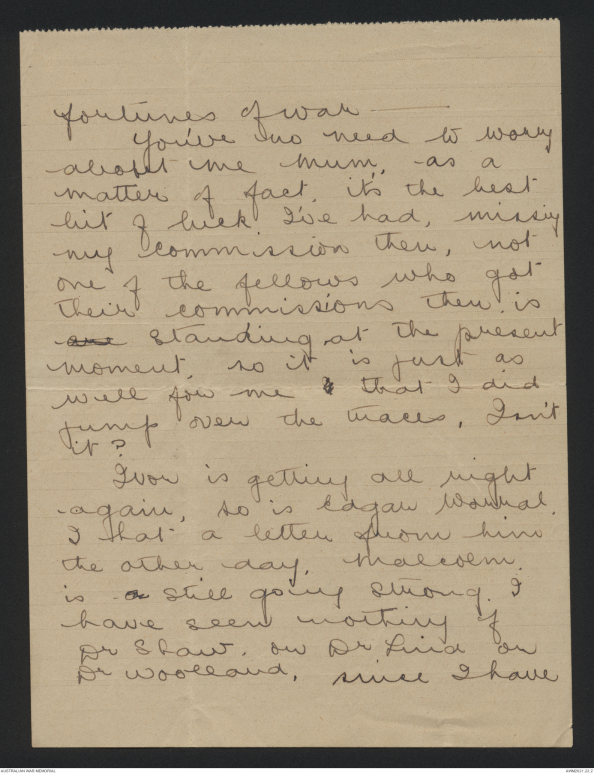 fortunes of war
You've no need to worry
about me Mum, as a
matter of fact, it's the best
bit of luck I've had, missing
my commission then, not
one of the fellows who got
their commissions then is
are standing at the present
moment, so it is just as
well for me that I did
jump over the traces, Isn't
it?
Ivor is getting all right
again, so is Edgar Worral.
I hat a letter from him
the other day, Malcolm
is a still going strong. I
have seen nothing of
Dr Shaw, or Dr Lind or
Dr Woolland, since I have
AUSTRALIAN WAR MEMORIAL